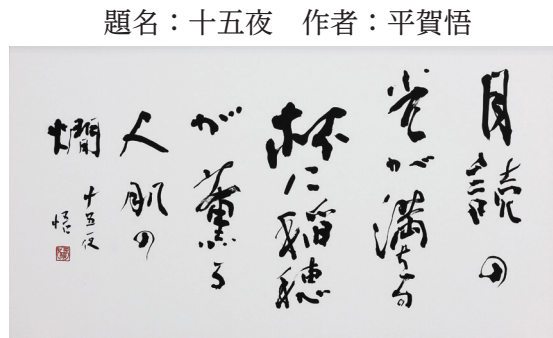 題名：十五夜　作者：平賀悟
月読の
光が満ちる
杯に稲穂
が薫る
人肌の
燗
十五夜
悟